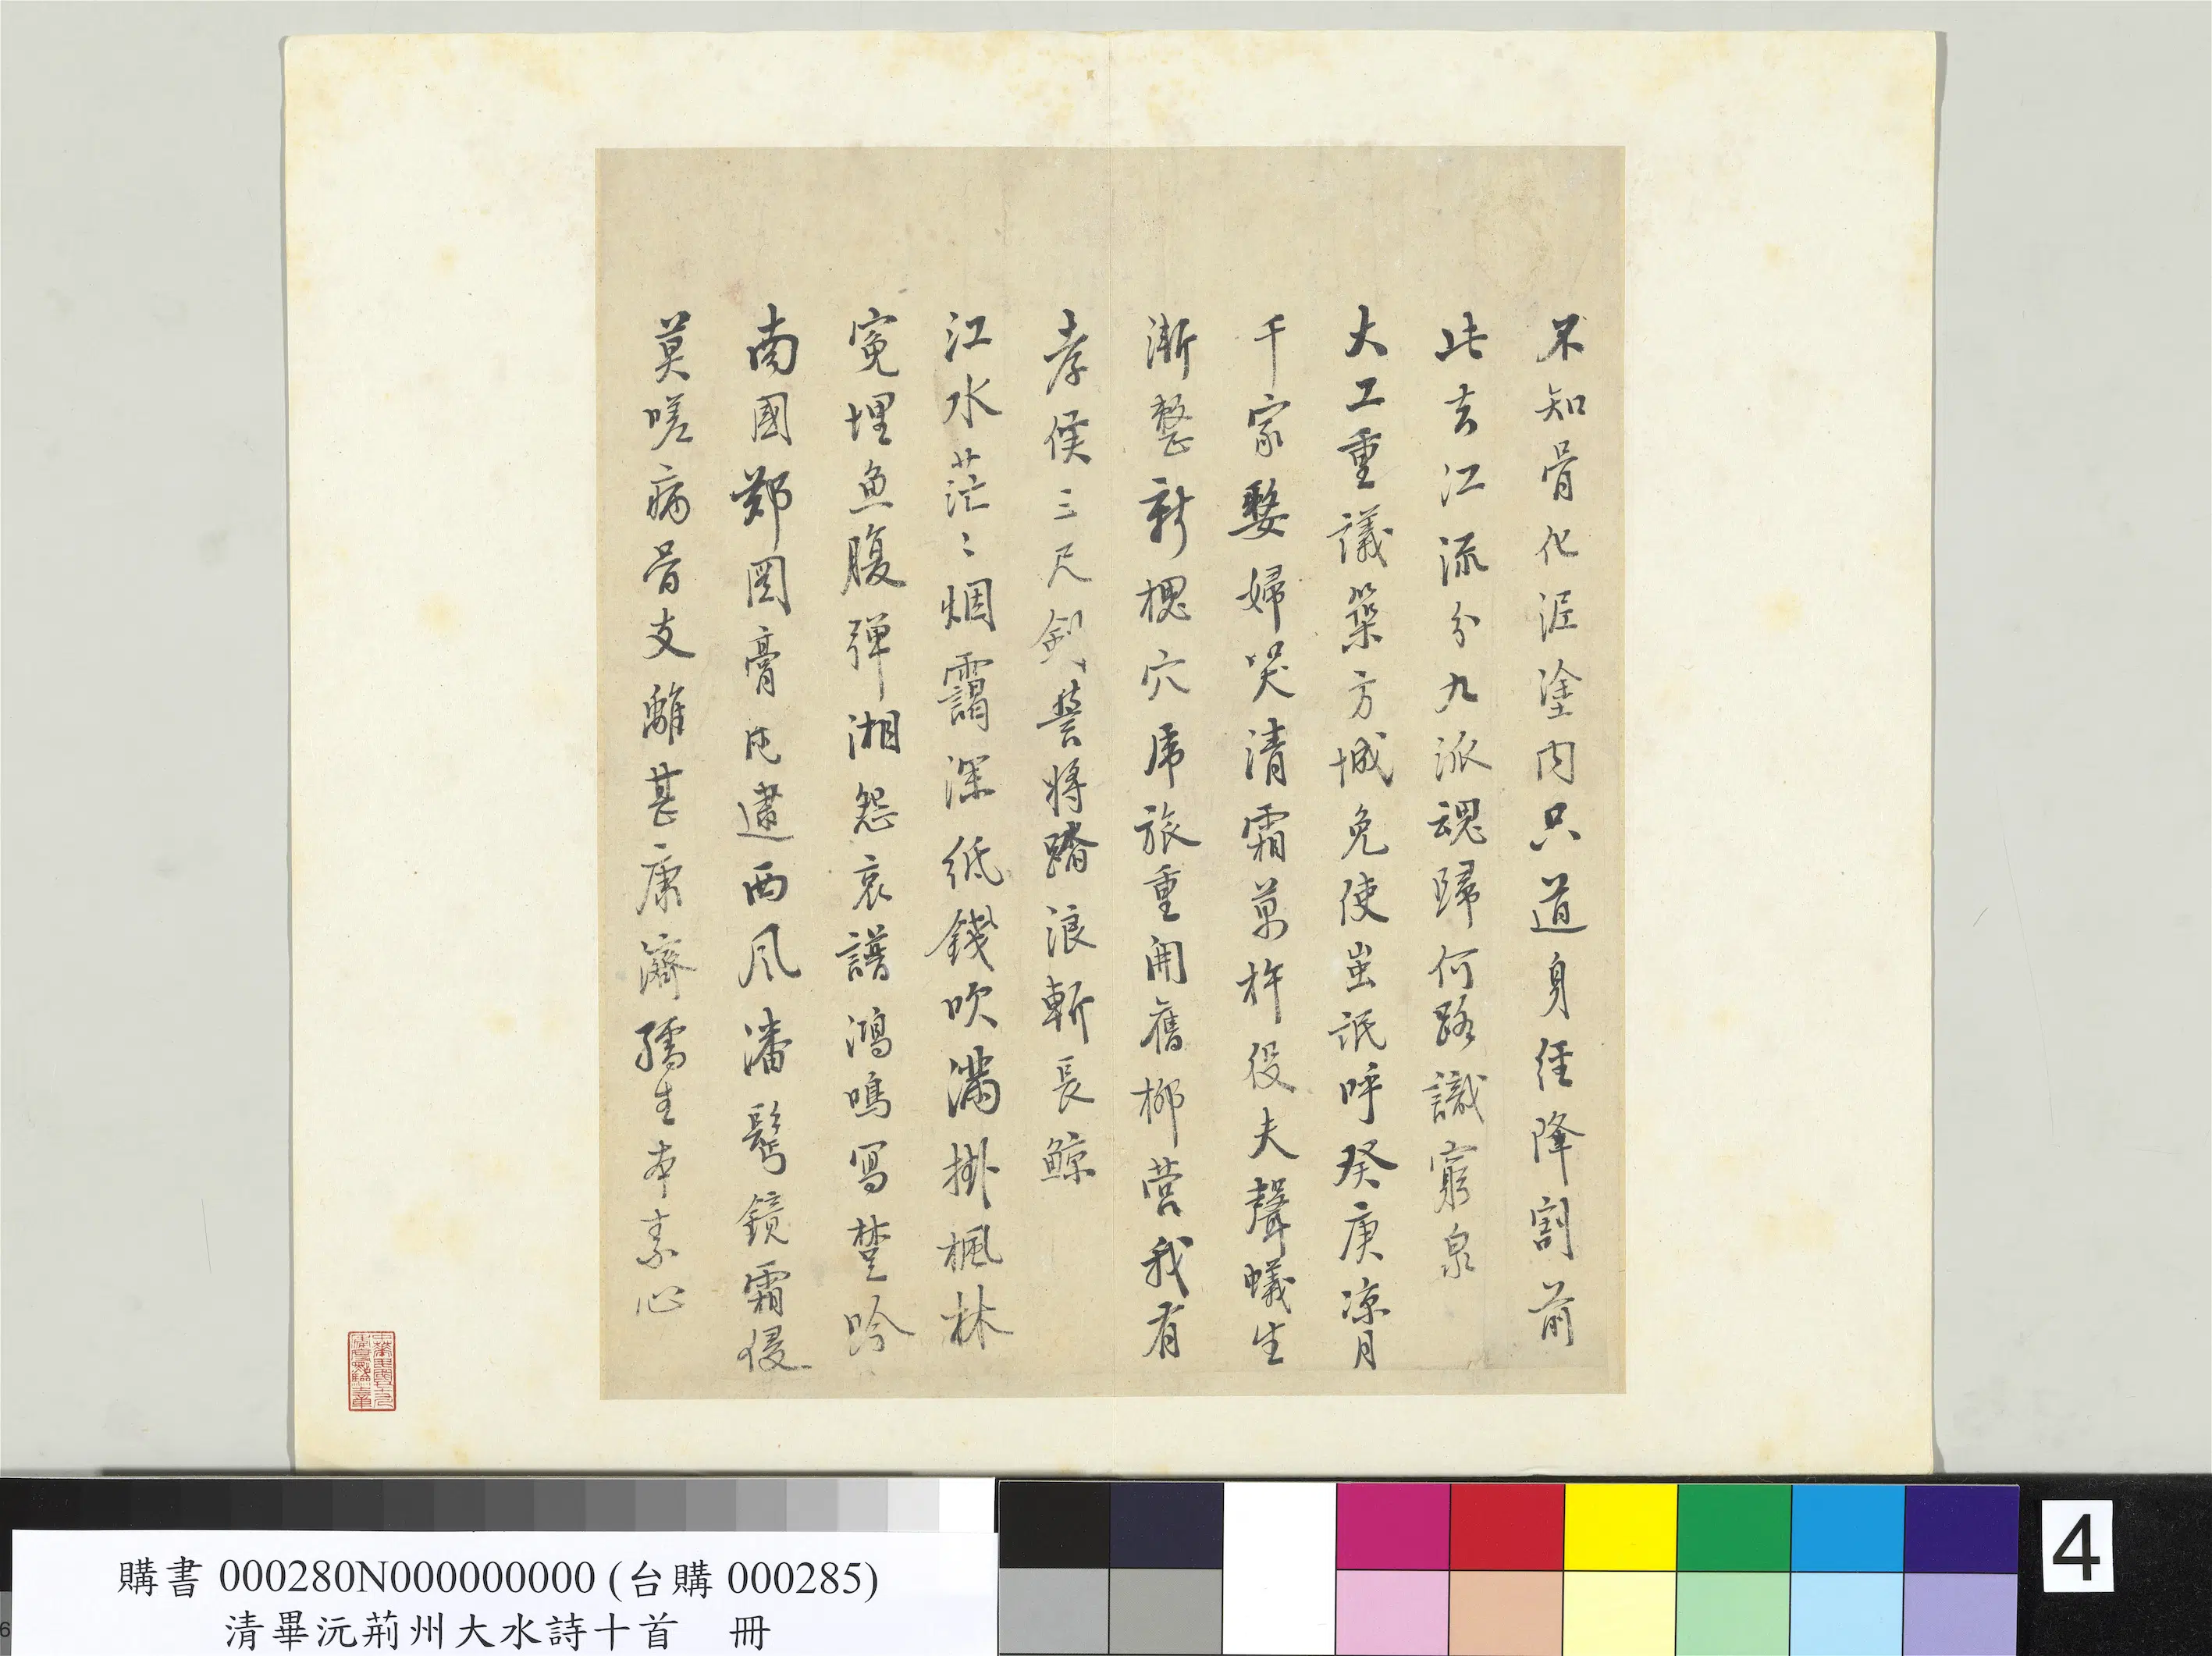 不知骨化涯塗内只道身經降割前
此去江流分九派魂歸何路識窮泉
大工重議築方城免使蚩氓呼癸庚涼月
千家嫠婦哭清霜萬杵役夫聲蟻生
漸整新槐穴虎旅重開舊柳營我有
孝侯三尺劍誓將踏浪斬長鯨
江水茫〻烟靄深紙錢吹滿掛楓林
冤埋魚腹彈湘怨哀譜鴻鳴寫楚吟
南國鄭圖膏屯遱西風潘鬢鏡霜侵
莫嗟病骨支離甚康濟孺生本素心
購書 000280N000000000 (台購 000285)
清畢沅荊州大水詩十首 冊
4